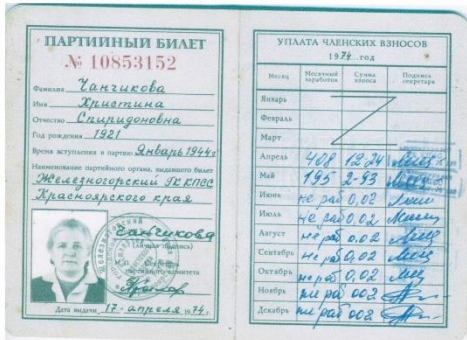 ПАРТИЙНЫЙ БИЛЕТ
№ 10853152
Фамилия Чанчикова
Имя Христина
Отчество Спиридоновна
Год рождения 1921
Время вступления в партию Январь 1944г
Наименование партийного органа, выдавшего билет
Железногорский ГК КПСС
Красноярского края
Чанчикова
(личная подпись)
Дата выдачи 17 апреля 1974 г.
УПЛАТА ЧЛЕНСКИХ ВЗНОСОВ
1974 год
Месяц Месячный заработок Сумма взноса Подпись секретаря
Январь
Февраль
Март
Апрель 408 12-24
Май 195 2-93
Июнь не раб 0,02
Июль не раб 0,02
Август не раб 0,02
Сентябрь не раб 0,02
Октябрь не раб 0,02
Ноябрь не раб 002
Декабрь не раб 002